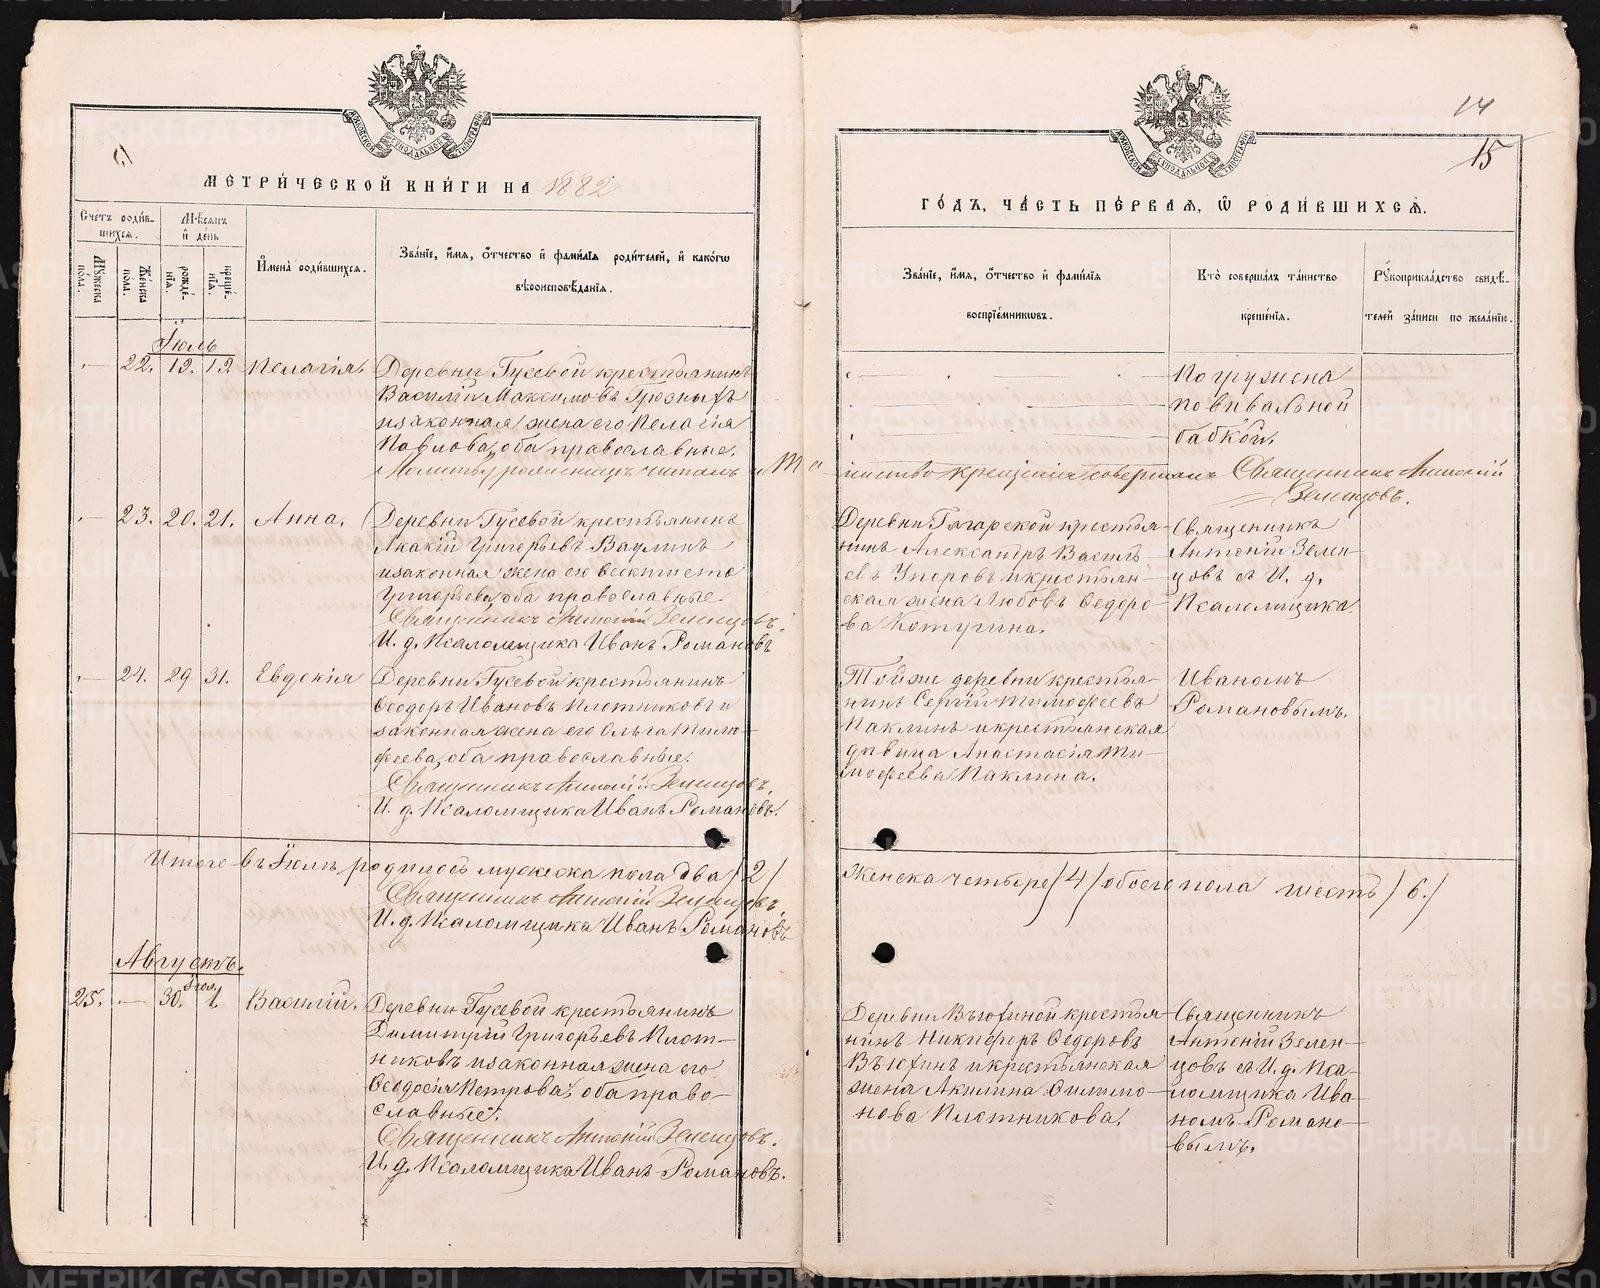 МЕТРИ́ЧЕСКОЙ КНИ́ГИ НА 1882
Счетъ роди́в-
шихсѧ.
Мѣсѧцъ
и҆ де́нь
Мꙋжеска
пола.
Женска
пола.
рожде́-
нїѧ.
креще́-
нїѧ.
И҆мена̀ родившихсѧ.
Зва́нїе, и҆́мѧ, ѻ҆́тчество и҆ фами́лїѧ роди́телей, и҆ како́гѡ
вѣроисповѣ́данїѧ.
Іюль
— 22. 19. 19. Пелагія. Деревни Гусевой крестьянинъ
Василій Максимовъ Грозныхъ
и законная жена его Пелагія
Павлова, оба православные.
Молитву родильницѣ читалъ и Та
— 23. 20. 21. Анна. Деревни Гусевой крестьянинъ
Акакій Григорьевъ Ваулинъ
и законная жена его Феоктиста
Григорьева, оба православные.
Священникъ Антоній Зеленцовъ.
И. д. Псаломщика Иванъ Романовъ
— 24. 29 31. Евдокія Деревни Гусевой крестьянинъ
Феодоръ Ивановъ Плотниковъ и
законная жена его Ольга Тимо-
феева, оба православные.
Священникъ Антоній Зеленцовъ.
И. д. Псаломщика Иванъ Романовъ.
Итого въ Іюлѣ родилось мужеска пола два /2/
Священникъ Антоній Зеленцовъ.
И. д. Псаломщика Иванъ Романовъ
Августъ.
Іюл.
25. — 30. 1. Василій. Деревни Гусевой крестьянинъ
Димитрій Григорьевъ Плот-
никовъ и законная жена его
Феодосія Петрова, оба право-
славные.
Священникъ Антоній Зеленцовъ.
И. д. Псаломщика Иванъ Романовъ.
14
15
ГО́ДЪ, ЧА́СТЬ ПЕ́РВАѦ, Ѡ҆ РОДИ́ВШИХСѦ.
Зва́нїе, и҆́мѧ, ѻ҆́тчество и҆ фами́лїѧ
воспрїе́мникѡвъ.
Кто̀ соверша́лъ та́инство
креще́нїѧ.
Рꙋкоприкла́дство свидѣ́-
телей за́писи по жела́нїю.
Погружена
повивальной
бабкой.
инство крещенія совершалъ Священникъ Антоній
Зеленцовъ.
Деревни Гагарской крестья-
нинъ Александръ Василь-
евъ Упоровъ и крестьян-
ская жена Любовь Федоро-
ва Котугина.
Священникъ
Антоній Зелен-
цовъ съ И. д.
Псаломщика
Той же деревни крестья-
нинъ Сергій Тимофеевъ
Паклинъ и крестьянская
дѣвица Анастасія Ти-
мофеева Паклина.
Иваномъ
Романовымъ.
Женска четыре /4/ обоего пола шесть /6./
Деревни Вьюхиной крестья-
нинъ Никифоръ Федоровъ
Вьюхинъ и крестьянская
жена Акилина Филимо-
нова Плотникова.
Священникъ
Антоній Зелен-
цовъ съ И. д. Пса-
ломщика Ива-
номъ Романо-
вымъ.
METRIKI.GASO-URAL.RU